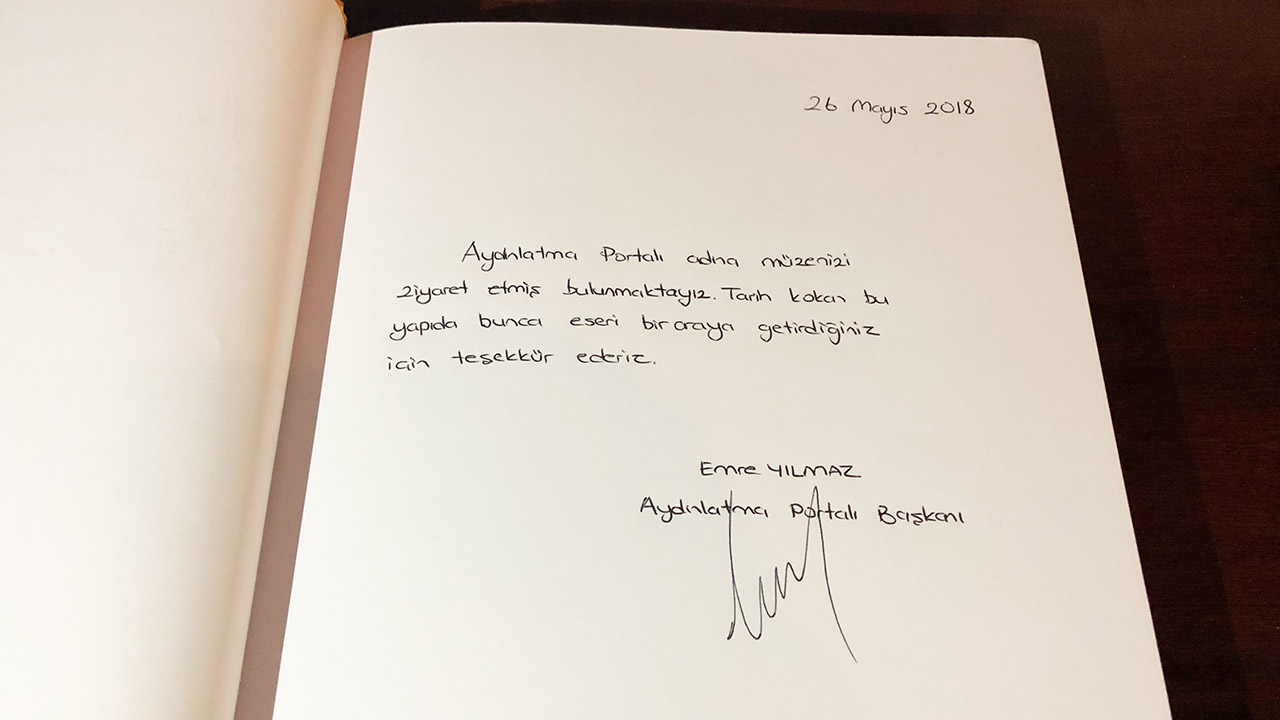 26 Mayıs 2018
Aydınlatma Portalı adına müzenizi
ziyaret etmiş bulunmaktayız. Tarih kokan bu
yapıda bunca eseri bir araya getirdiğiniz
için teşekkür ederiz.
Emre YILMAZ
Aydınlatma Portalı Başkanı